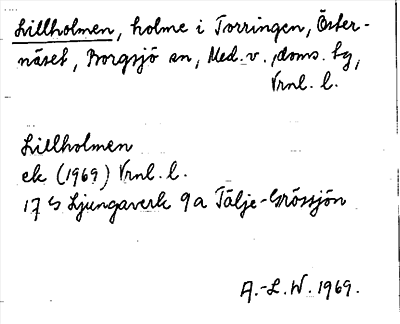 Lillholmen, holme i Torringen, Öster-
näset, Borgsjö sn, Med. v. doms. tg,
Vrnl. l.
Lillholmen
ek (1969) Vrnl. l.
17 G Ljungaverk 9a Tälje-Grössjön
A.-L.W. 1969.